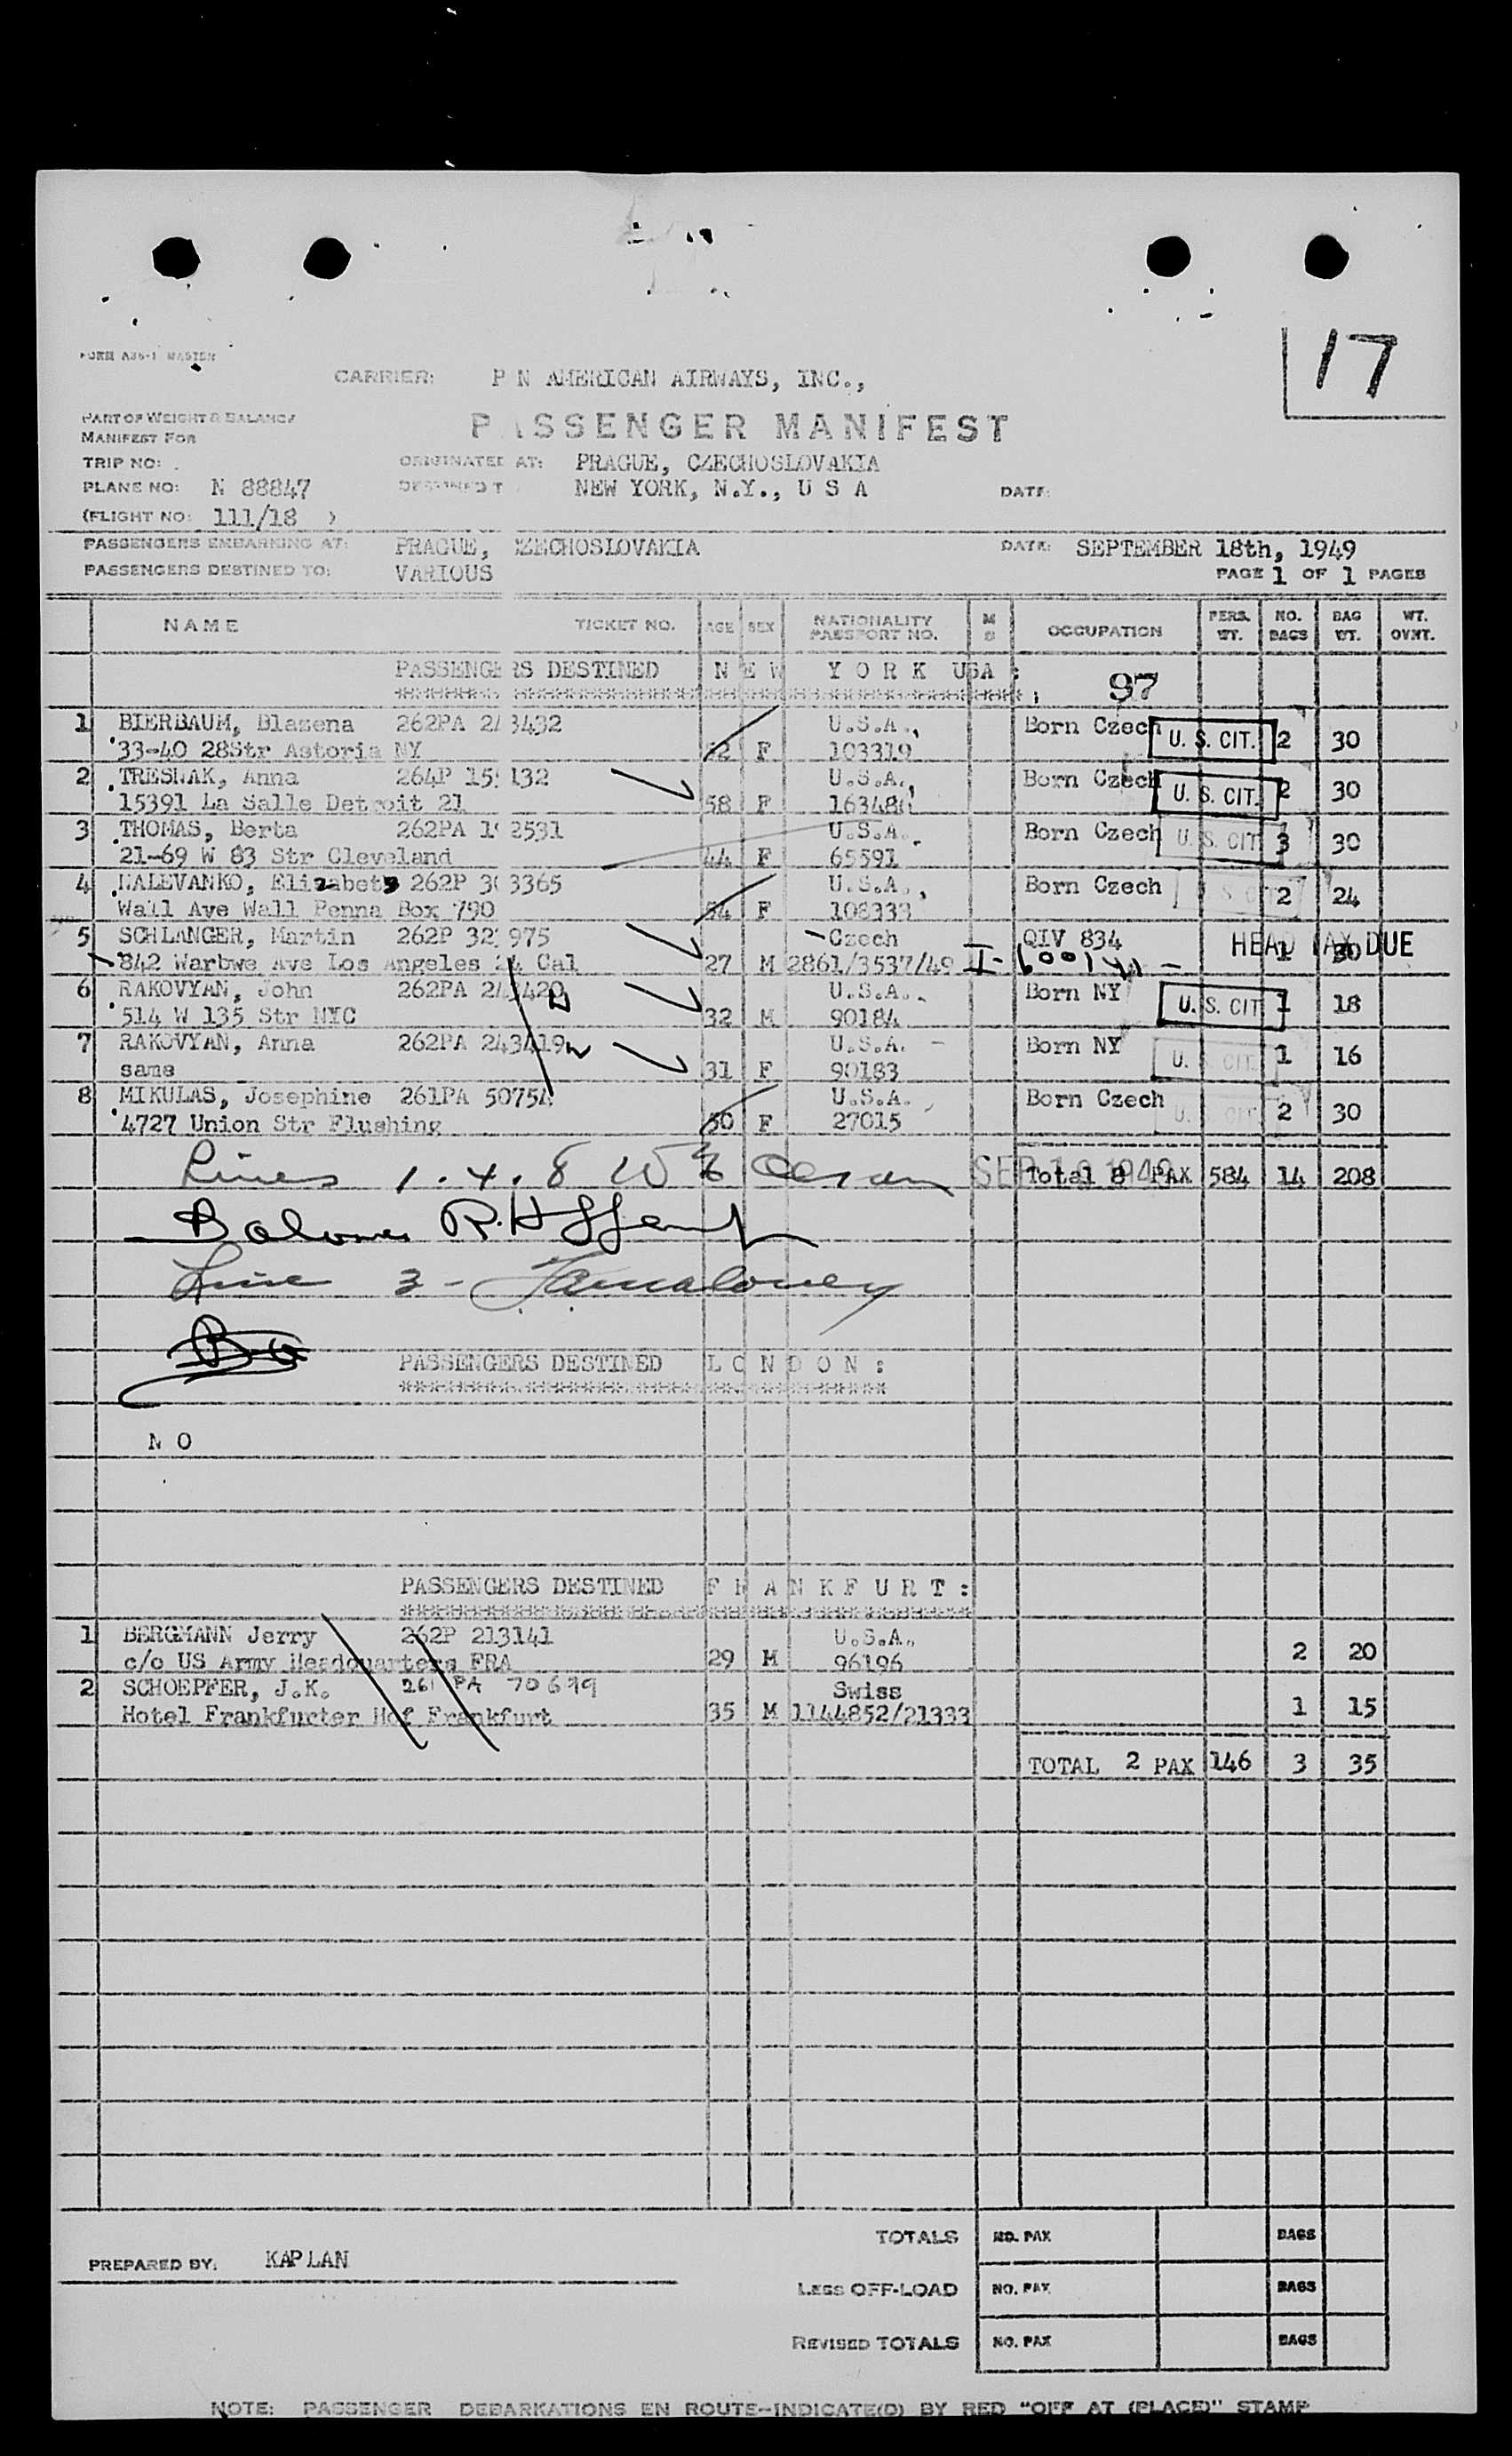 17
FORM A36-1 MASTER
CARRIER: P N AMERICAN AIRWAYS, INC.,
PART OF WEIGHT & BALANCE
MANIFEST FOR
P SSENGER MANIFEST
TRIP NO: ORIGINATED AT: PRAGUE, CZECHOSLOVAKIA
PLANE NO: N 88847 DESTINED T NEW YORK, N.Y., U S A DATE:
(FLIGHT NO: 111/18 )
PASSENGERS EMBARKING AT: PRAGUE, ZECHOSLOVAKIA DATE: SEPTEMBER 18th, 1949
PASSENGERS DESTINED TO: VARIOUS PAGE 1 OF 1 PAGES
NAME TICKET NO. AGE SEX NATIONALITY PASSPORT NO. M S OCCUPATION PERS. WT. NO. BAGS BAG WT. WT. OVNT.
PASSENGERS DESTINED N E W Y O R K USA :
97
1 BIERBAUM, Blazena 262PA 2 3432 U.S.A., Born Czech U. S. CIT. 2 30
33-40 28Str Astoria NY F 103319
2 TRESNAK, Anna 264P 15 132 U.S.A., Born Czech U. S. CIT. 2 30
15391 La Salle Detroit 21 58 F 16348
3 THOMAS, Berta 262PA 1 2531 U.S.A. Born Czech U. S. CIT 3 30
21-69 W 83 Str Cleveland 44 F 65591
4 HALEVANKO, Elizabeth 262P 3 3365 U.S.A., Born Czech S. C 2 24
Wall Ave Wall Penna Box 790 54 F 108333
5 SCHLANGER, Martin 262P 32 975 Czech QIV 834 HEAD TAX DUE
842 Ave Los Angeles 24 Cal 27 M 2861/3537/49 1 30
6 RAKOVYAN, John 262PA 2 3420 U.S.A. Born NY U. S. CIT 1 18
514 W 135 Str NYC 32 M 90184
7 RAKOVYAN, Anna 262PA 243419 U.S.A. Born NY U. CIT. 1 16
same 31 F 90183
8 MIKULAS, Josephine 261PA 50754 U.S.A. Born Czech U. S. CIT 2 30
4727 Union Str Flushing 50 F 27015
Lines 1. 4. 8 SEP 19 1949 Total 8 PAX 584 14 208
Balance
Line 3 -
PASSENGERS DESTINED L O N D O N :
N O
PASSENGERS DESTINED F R A N K F U R T :
1 BERGMANN Jerry 262P 213141 U.S.A. 2 20
c/o US Army Headquarters FRA 29 M 96196
2 SCHOEPFER, J.K. 261 PA 70699 Swiss 1 15
Hotel Frankfurter Hof Frankfurt 35 M 1144852/21333
TOTAL 2 PAX 146 3 35
TOTALS NO. PAX BAGS
PREPARED BY: KAPLAN
LESS OFF-LOAD NO. PAX BAGS
REVISED TOTALS NO. PAX BAGS
NOTE: PASSENGER DEBARKATIONS EN ROUTE—INDICATE(D) BY RED "OFF AT (PLACE)" STAMP